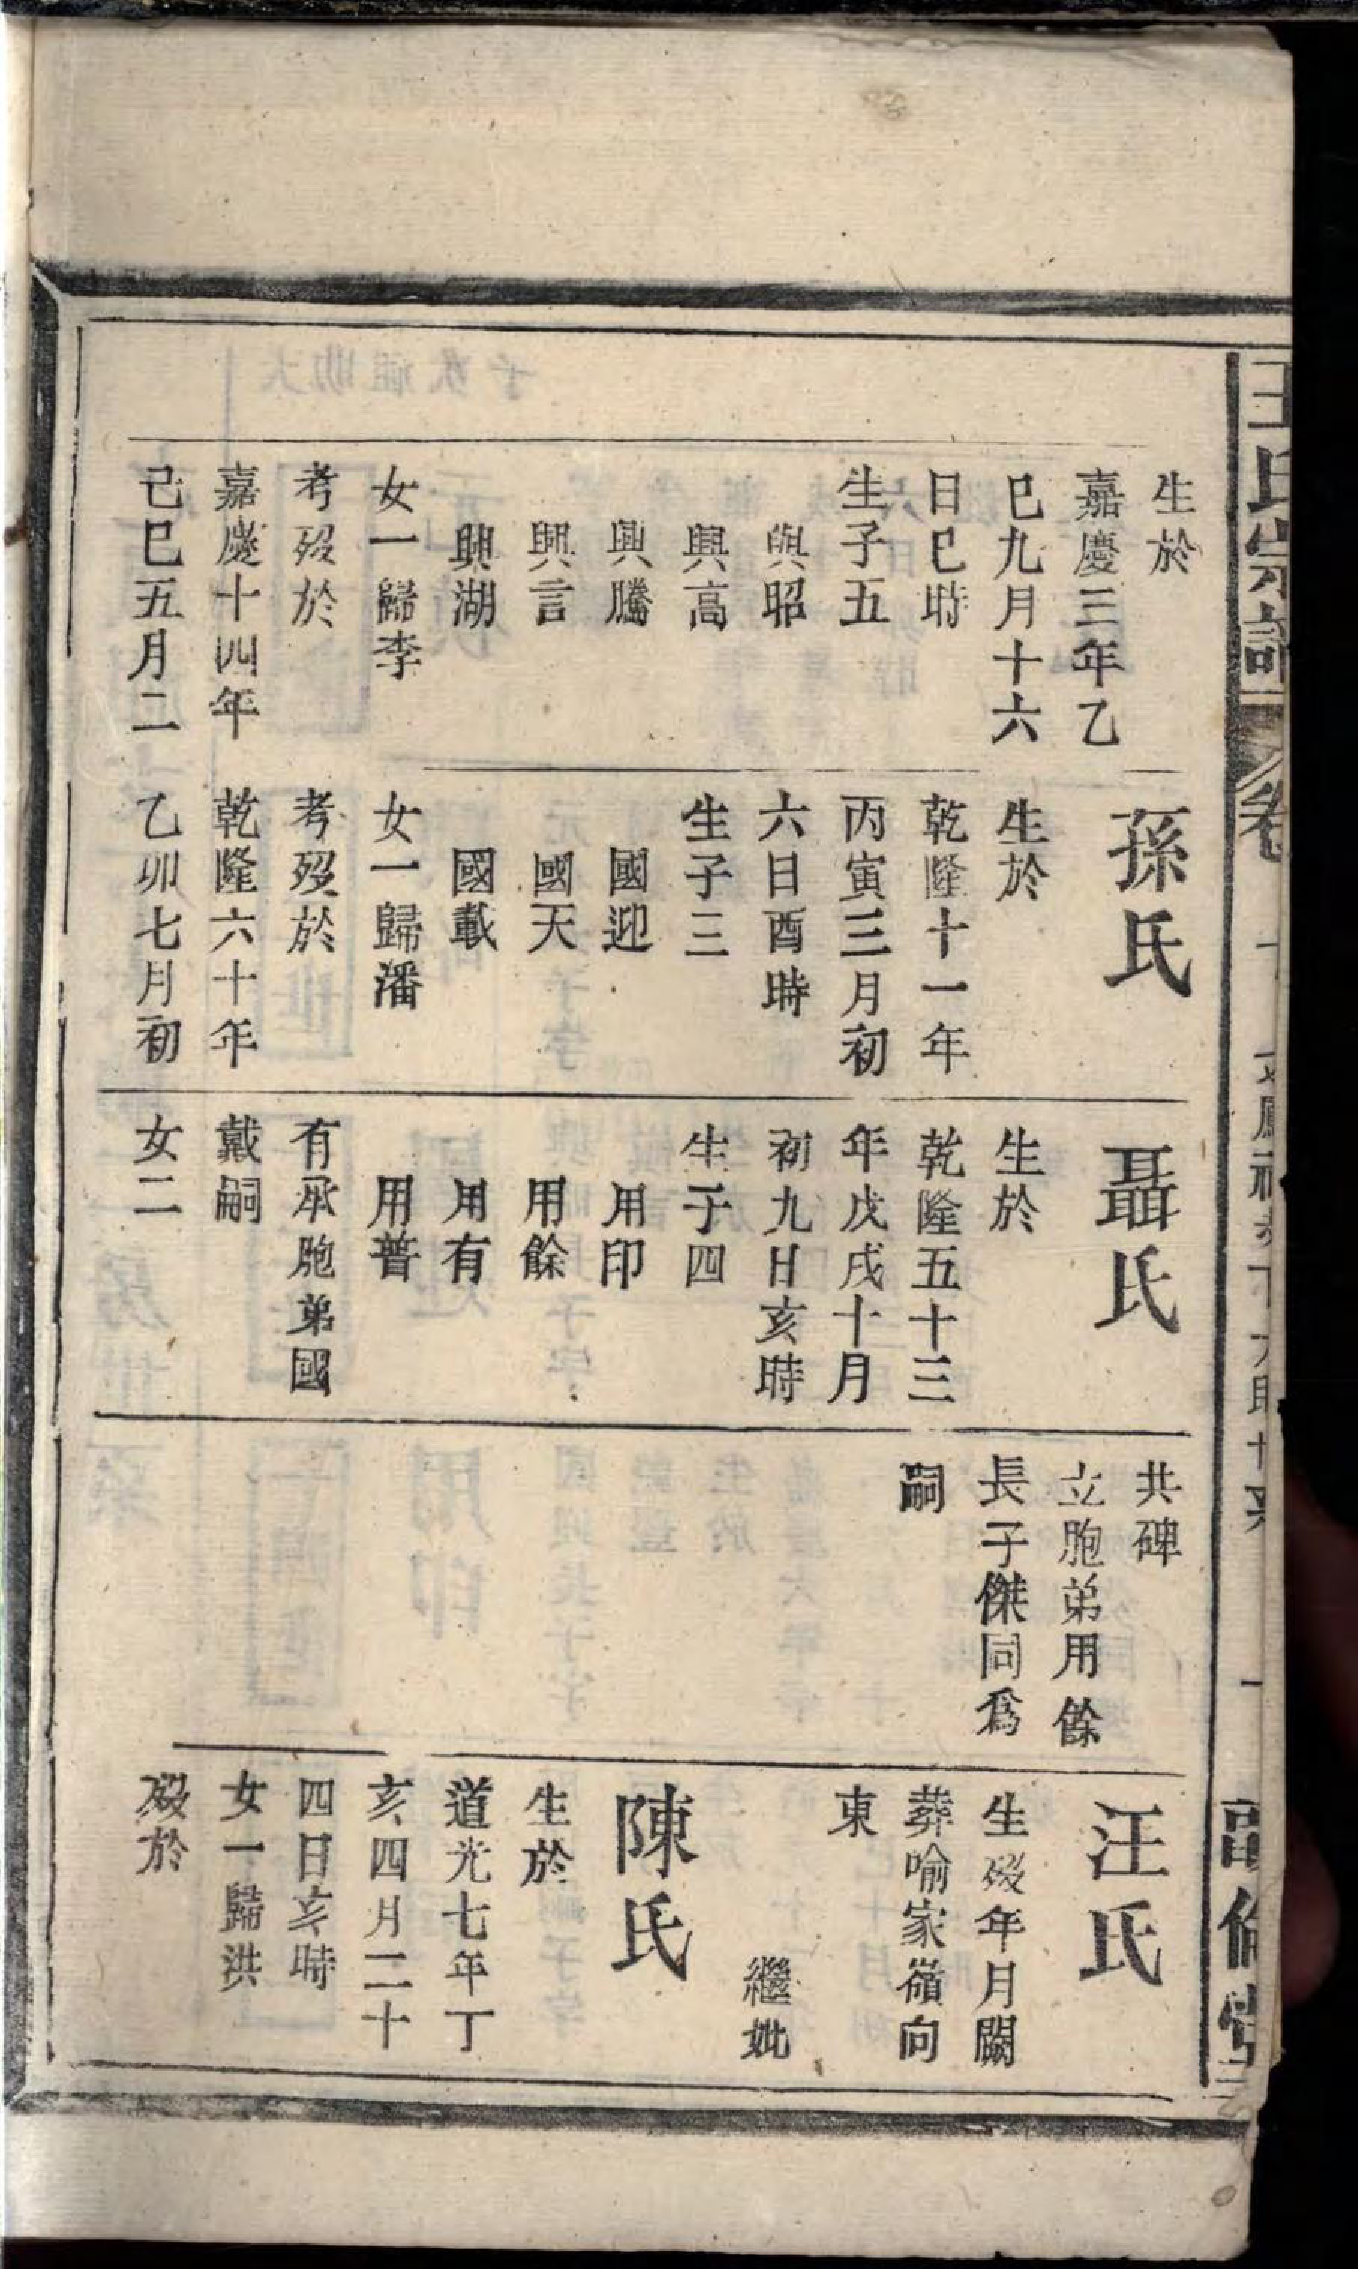 王氏宗譜
卷
生於
嘉慶三年乙
巳九月十六
日巳時
生子五
與昭
興高
興騰
興言
興湖
女一歸李
考歿於
嘉慶十四年
己巳五月二
孫氏
生於
乾隆十一年
丙寅三月初
六日酉時
生子三
國迎
國天
國載
女一歸潘
考歿於
乾隆六十年
乙卯七月初
聶氏
生於
乾隆五十三
年戊戌十月
初九日亥時
生子四
用印
用餘
用有
用普
有承胞弟國
戴嗣
女二
共碑
立胞弟用餘
長子傑同爲
嗣
汪氏
生歿年月闕
葬喻家嶺向
東
繼妣
陳氏
生於
道光七年丁
亥四月二十
四日亥時
女一歸洪
歿於